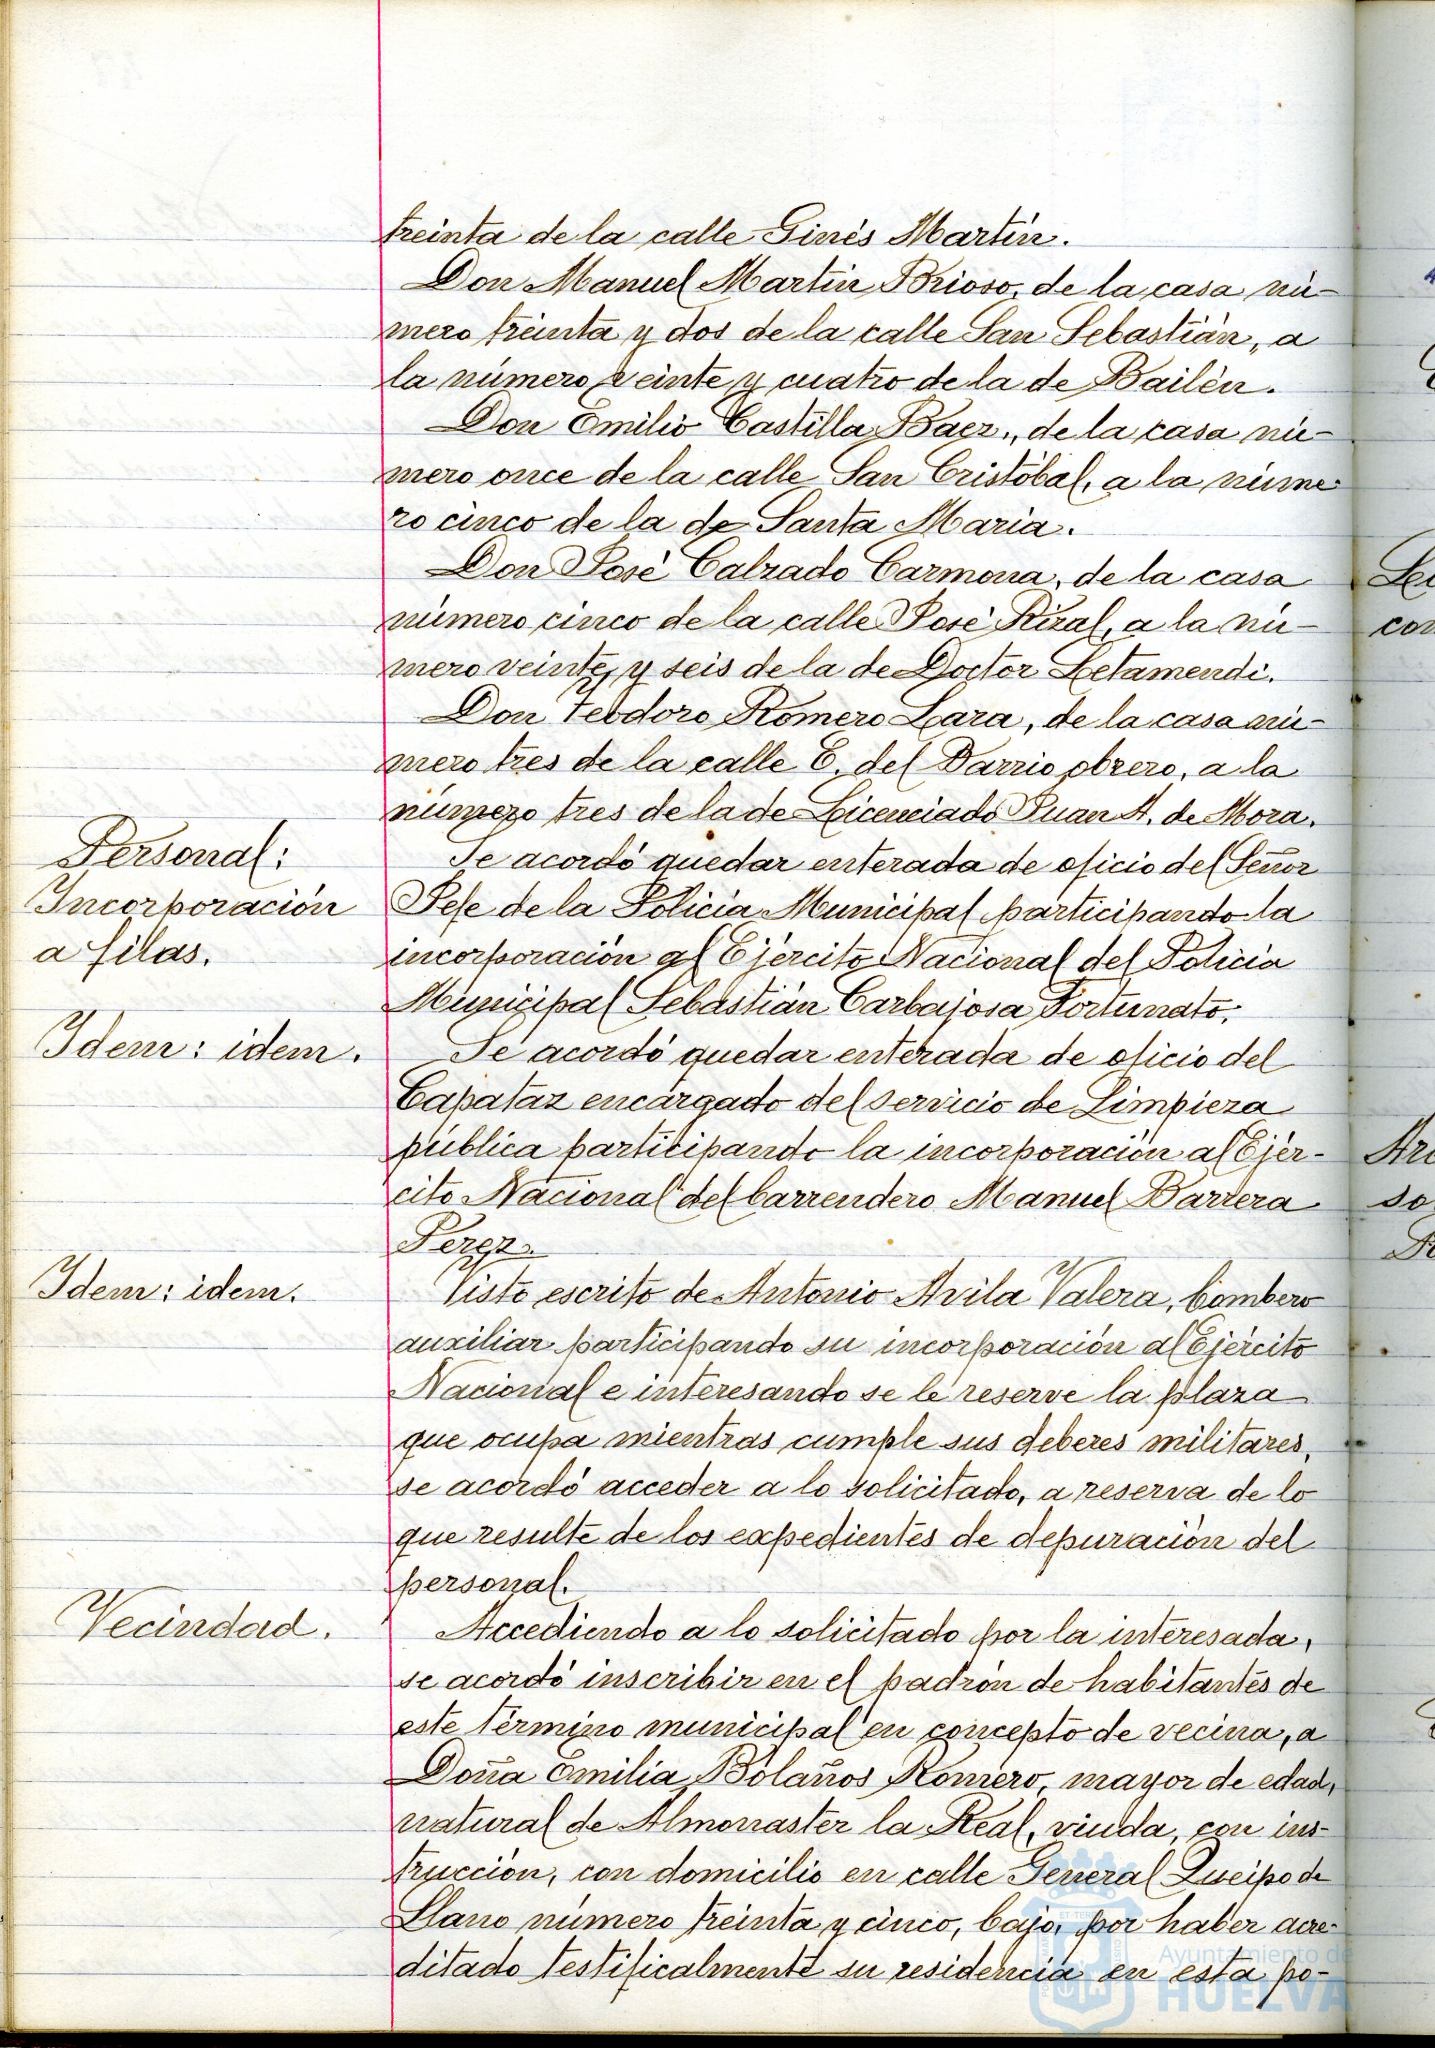 treinta de la calle Ginés Martín.
Don Manuel Martín Brioso, de la casa nú-
mero treinta y dos de la calle San Sebastián, a
la número veinte y cuatro de la de Bailén.
Don Emilio Castilla Baez, de la casa nú-
mero once de la calle San Cristóbal, a la núme-
ro cinco de la de Santa Maria.
Don José Calzado Carmona, de la casa
número cinco de la calle José Rizal, a la nú-
mero veinte y seis de la de Doctor Letamendi.
Don Teodoro Romero Lara, de la casa nú-
mero tres de la calle E. del Barrio obrero, a la
número tres de la de Licenciado Juan A. de Mora.
Personal:
Incorporación
a filas.
Se acordó quedar enterada de oficio del Señor
Jefe de la Policía Municipal participando la
incorporación al Ejército Nacional del Policía
Municipal Sebastián Carbajosa Fortunato.
Idem: idem.
Se acordó quedar enterada de oficio del
Capataz encargado del servicio de Limpieza
pública participando la incorporación al Ejér-
cito Nacional del barrendero Manuel Barrera
Perez.
Idem: idem.
Visto escrito de Antonio Avila Valera, bombero
auxiliar participando su incorporación al Ejército
Nacional e interesando se le reserve la plaza
que ocupa mientras cumple sus deberes militares,
se acordó acceder a lo solicitado, a reserva de lo
que resulte de los expedientes de depuración del
personal.
Vecindad.
Accediendo a lo solicitado por la interesada,
se acordó inscribir en el padrón de habitantes de
este término municipal en concepto de vecina, a
Doña Emilia Bolaños Romero, mayor de edad,
natural de Almonaster la Real, viuda, con ins-
trucción, con domicilio en calle General Queipo de
Llano número treinta y cinco, bajo, por haber acre-
ditado testificalmente su residencia en esta po-
Ayuntamiento de
HUELVA